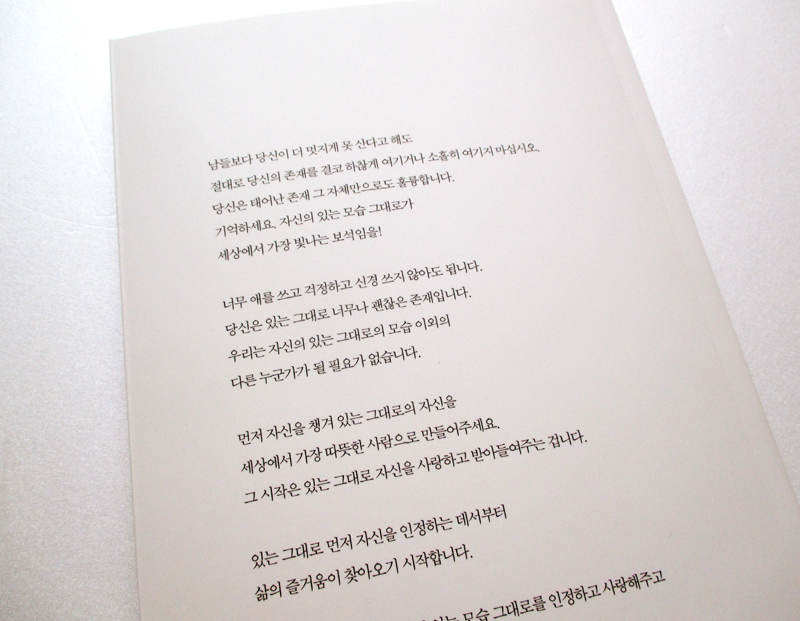 남들보다 당신이 더 멋지게 못 산다고 해도
절대로 당신의 존재를 결코 하찮게 여기거나 소홀히 여기지 마십시오.
당신은 태어난 존재 그 자체만으로도 훌륭합니다.
기억하세요. 자신의 있는 모습 그대로가
세상에서 가장 빛나는 보석임을!
너무 애를 쓰고 걱정하고 신경 쓰지 않아도 됩니다.
당신은 있는 그대로 너무나 괜찮은 존재입니다.
우리는 자신의 있는 그대로의 모습 이외의
다른 누군가가 될 필요가 없습니다.
먼저 자신을 챙겨 있는 그대로의 자신을
세상에서 가장 따뜻한 사람으로 만들어주세요.
그 시작은 있는 그대로 자신을 사랑하고 받아들여주는 겁니다.
있는 그대로 먼저 자신을 인정하는 데서부터
삶의 즐거움이 찾아오기 시작합니다.
모습 그대로를 인정하고 사랑해주고